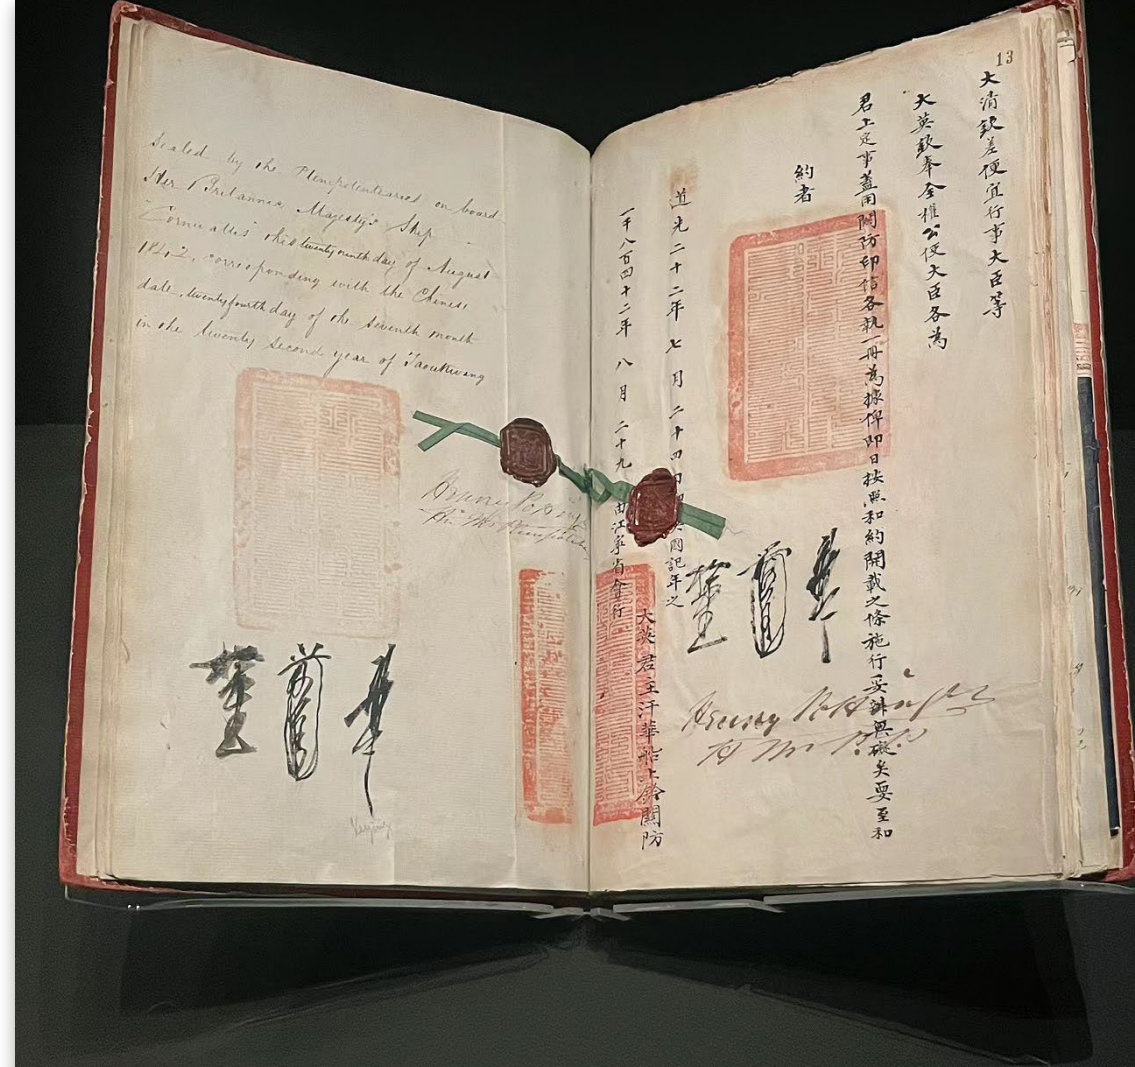 Sealed by the Plenipotentiaries on board
Her Britannic Majesty's Ship
Cornwallis this twenty ninth day of August
1842, corresponding with the Chinese
date, twenty fourth day of the seventh month
in the twenty second year of Taoukwang
Henry Pottinger
Keying
13
大清欽差便宜行事大臣等
大英欽奉全權公使大臣各為
君上定事蓋用關防印信各執一冊為據俾即日按照和約開載之條施行妥辦無礙矣要至和
約者
道光二十二年七月二十四日即英國記年之
一千八百四十二年八月二十九日由江寧省會行
大英君主汗華船上鈐關防
Henry Pottinger